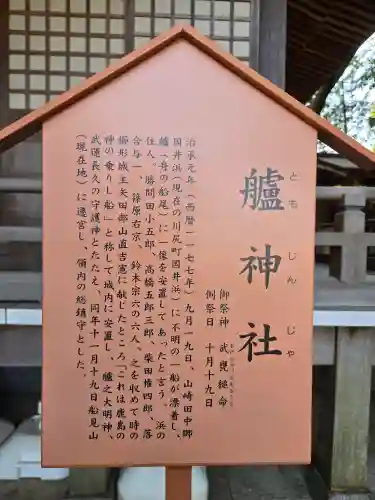 艫神社
ともじんじゃ
御祭神 武甕槌命
例祭日 十月十九日
治承元年（西暦一一七七年）九月一九日、山崎田中郷
国井浜（現在の川尻町国井浜）に不明の一船が漂着し、
艫（舟の船尾）に一像を安置してあったと言う、浜の
住人、勝間田小五郎、高橋五郎三郎、柴田権四郎、落
合与一、篠原右京、鈴木宗六の六人、之を収めて時の
櫛形城主矢田部山直吉憲に献じたところ「これは鹿島の
神の乗りし船」と称して城内に安置し、艫之大明神、
武運長久の守護神とたたえ、同年十一月十九日船見山
（現在地）に遷宮し、領内の総鎮守とした。